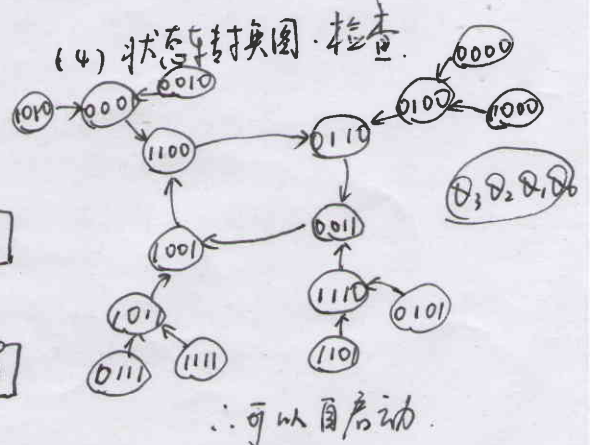 (4) 状态转换图.检查.
0000
0010
1010 0001 0100 1000
1100 0110
Q₃Q₂Q₁Q₀
1001 0011
1011 1110 0101
0111 1111 1101
∴可以自启动.